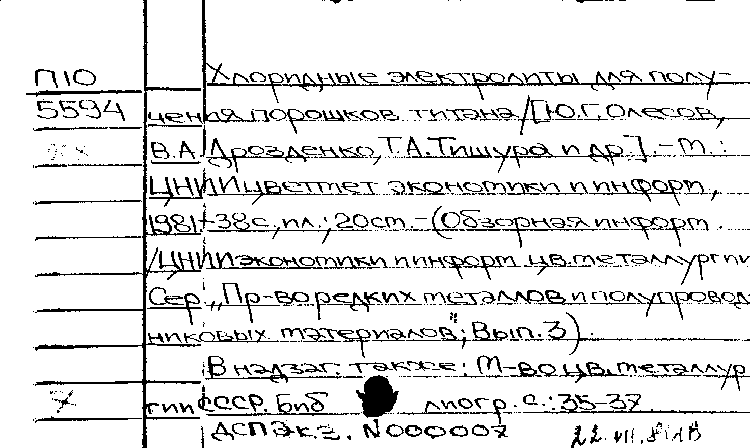 П10 Хлоридные электролиты для полу-
5594 чения порошков титана/[Ю.Г.Олесов,
В.А.Дрозденко, Г.А.Тишура и др.].-М.:
ЦНИИцветмет экономики и информ.,
1981.-38с., ил.; 20см.-(Обзорная информ.
/ЦНИИ экономики и информ. цв. металлургии
Сер. „Пр-во редких металлов и полупровод
никовых материалов"; Вып. 3).
В надзаг. также: М-во цв. металлур
гии СССР. Биб лиогр. с.: 35-37.
ДСП Экз. N000007